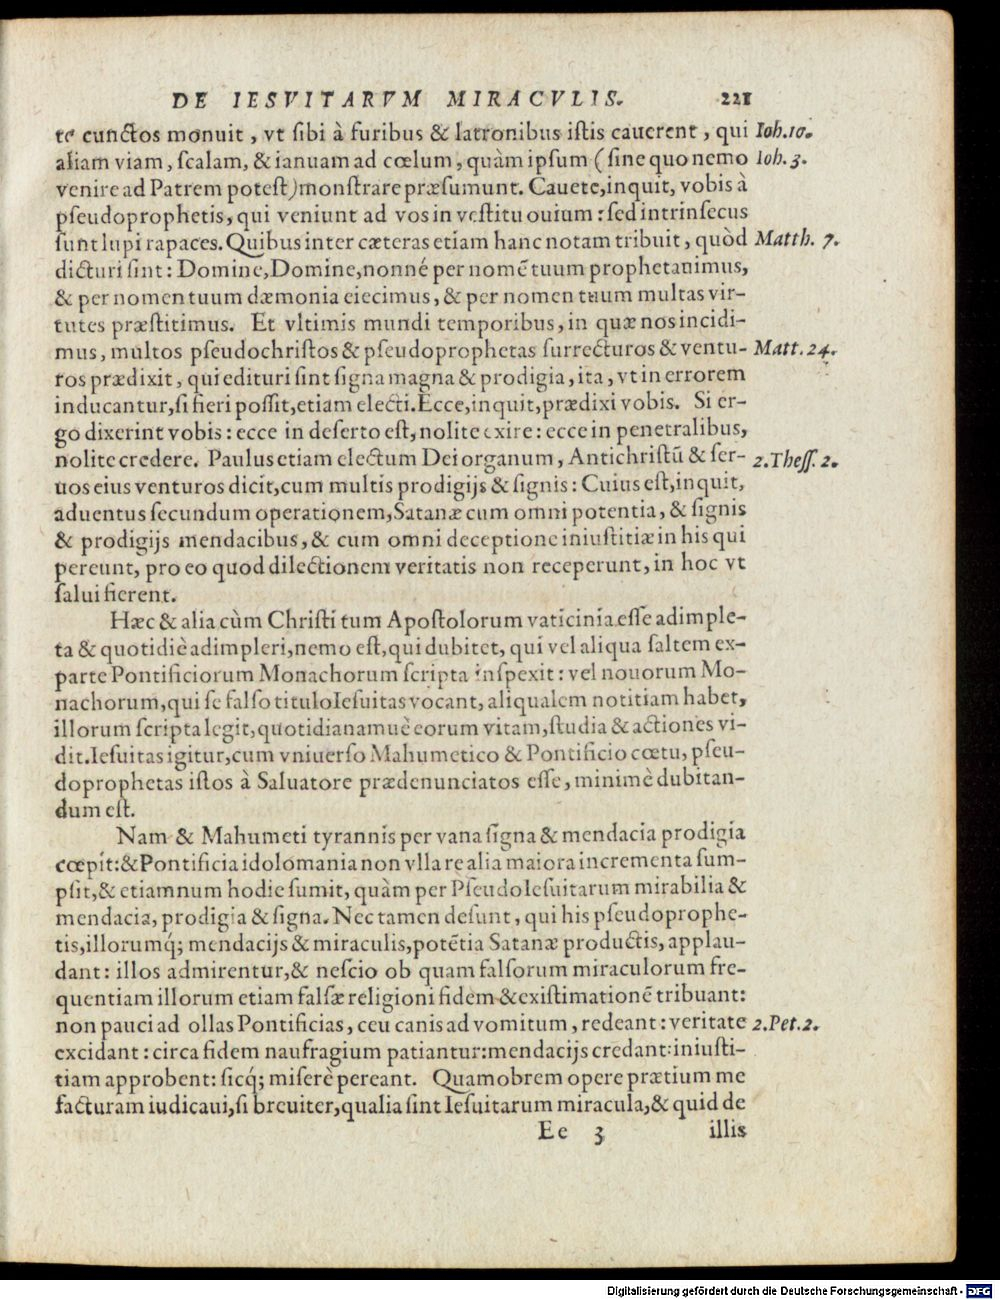 DE IESVITARVM MIRACVLIS. 221
te cunctos monuit, vt sibi à furibus & latronibus istis cauerent, qui Ioh. 10.
aliam viam, scalam, & ianuam ad cœlum, quàm ipsum (sine quo nemo Ioh. 3.
venire ad Patrem potest) monstrare præsumunt. Cauete, inquit, vobis à
pseudoprophetis, qui veniunt ad vos in vestitu ouium: sed intrinsecus
sunt lupi rapaces. Quibus inter cæteras etiam hanc notam tribuit, quòd Matth. 7.
dicturi sint: Domine, Domine, nonné per nomẽ tuum prophetauimus,
& per nomen tuum dæmonia eiecimus, & per nomen tuum multas vir-
tutes præstitimus. Et vltimis mundi temporibus, in quæ nos incidi-
mus, multos pseudochristos & pseudoprophetas surrecturos & ventu- Matt. 24.
ros prædixit, qui edituri sint signa magna & prodigia, ita, vt in errorem
inducantur, si fieri possit, etiam electi. Ecce, inquit, prædixi vobis. Si er-
go dixerint vobis: ecce in deserto est, nolite exire: ecce in penetralibus,
nolite credere. Paulus etiam electum Dei organum, Antichristũ & ser- 2. Thess. 2.
uos eius venturos dicit, cum multis prodigijs & signis: Cuius est, inquit,
aduentus secundum operationem, Satanæ cum omni potentia, & signis
& prodigijs mendacibus, & cum omni deceptione iniustitiæ in his qui
pereunt, pro eo quod dilectionem veritatis non receperunt, in hoc vt
salui fierent.
Hæc & alia cùm Christi tum Apostolorum vaticinia esse adimple-
ta & quotidiè adimpleri, nemo est, qui dubitet, qui vel aliqua saltem ex-
parte Pontificiorum Monachorum scripta inspexit: vel nouorum Mo-
nachorum, qui se falso titulo Iesuitas vocant, aliqualem notitiam habet,
illorum scripta legit, quotidianamuè eorum vitam, studia & actiones vi-
dit. Iesuitas igitur, cum vniuerso Mahumetico & Pontificio cœtu, pseu-
doprophetas istos à Saluatore prædenunciatos esse, minimè dubitan-
dum est.
Nam & Mahumeti tyrannis per vana signa & mendacia prodigia
cœpit: & Pontificia idolomania non vlla re alia maiora incrementa sum-
psit, & etiamnum hodie sumit, quàm per Pseudo Iesuitarum mirabilia &
mendacia, prodigia & signa. Nec tamen desunt, qui his pseudoprophe-
tis, illorumq́; mendacijs & miraculis, potẽtia Satanæ productis, applau-
dant: illos admirentur, & nescio ob quam falsorum miraculorum fre-
quentiam illorum etiam falsæ religioni fidem & existimationẽ tribuant:
non pauci ad ollas Pontificias, ceu canis ad vomitum, redeant: veritate 2. Pet. 2.
excidant: circa fidem naufragium patiantur: mendacijs credant: iniusti-
tiam approbent: sicq́; miserè pereant. Quamobrem operæ prætium me
facturam iudicaui, si breuiter, qualia sint Iesuitarum miracula, & quid de
Ee 3 illis
Digitalisierung gefördert durch die Deutsche Forschungsgemeinschaft - DFG